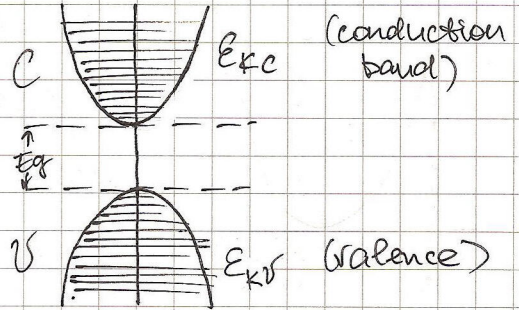 C εkc (conduction
band)
Eg
v εkv (valence)